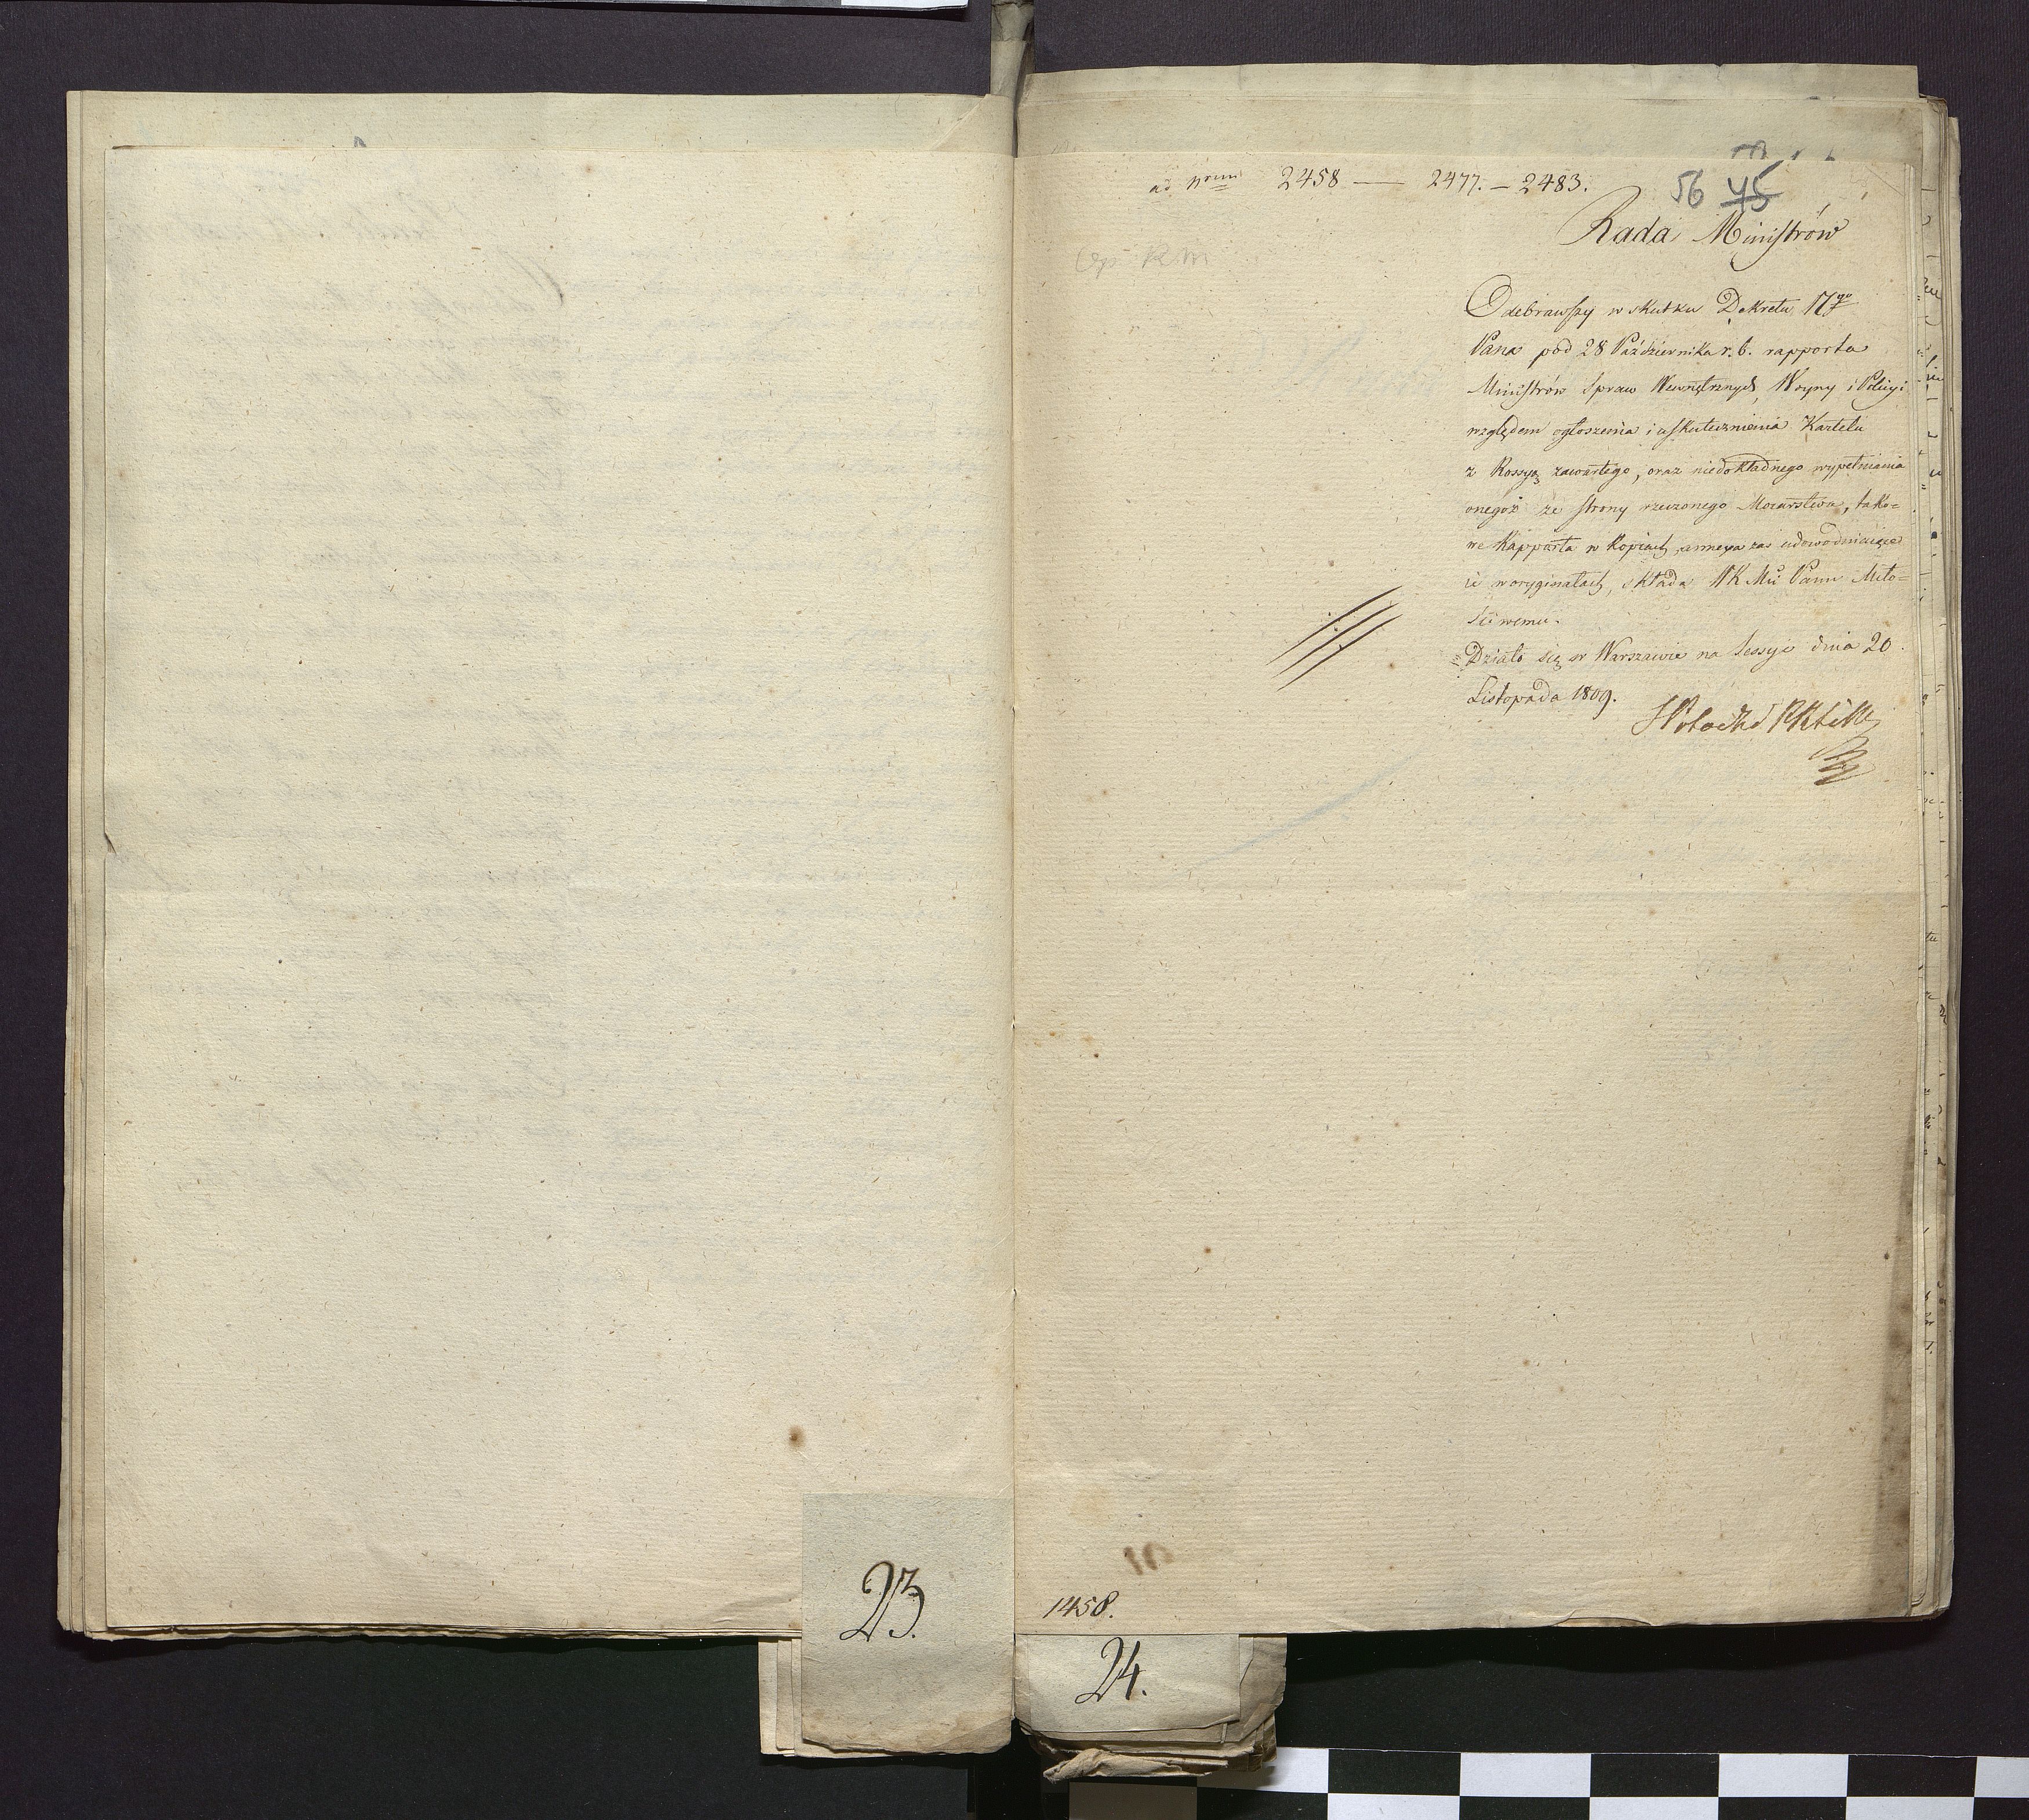 ad nrum 2458 — 2477. — 2483.
56 45
Rada Ministrów
Odebrawszy w skutku Dekretu 17go
Pana pod 28 Października r. b. rapporta
Ministrów Spraw Wewnętrznych, Woyny i Policyi
względem ogłoszenia i uskutecznienia Kartelu
z Rossyą zawartego, oraz niedokładnego wypełniania
onegoż ze strony rzeczonego Mocarstwa, tako=
we Rapporta w Kopiach, annexa zaś udowodniaiące
ie w oryginałach, składa WK Mci Panu Miło=
ściwemu.
Działo się w Warszawie na Sessyi dnia 20
Listopada 1809.
23.
1458.
24.